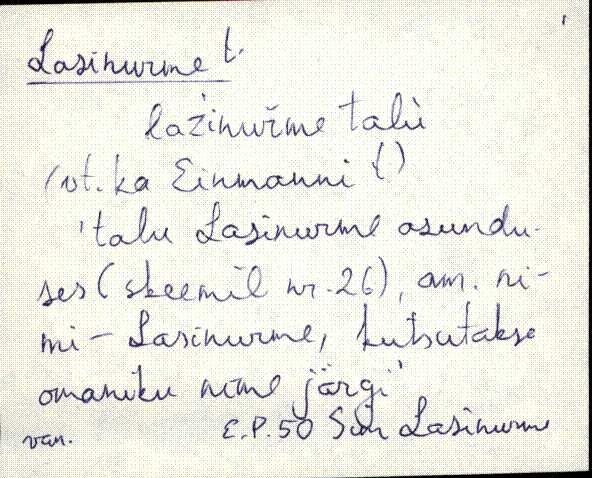 Lasinurme t.
lažinuřme talù
(vt. ka Einmanni t)
'talu Lasinurme asundu-
ses (skeemil nr. 26), am. ni-
mi - Lasinurme, kutsutakse
omaniku nime järgi'
van. E.P. 50 Sim Lasinurme